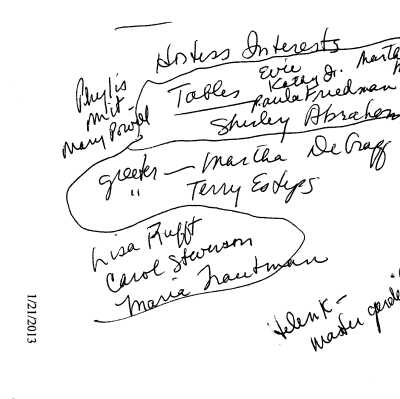 Hostess Interests
Phylis
Mary Powell
Tables
Evie
Kathy Jr.
Paula Friedman
Shirley Abraham
greeter - Martha DeGraff
" Terry Esteps
Lisa
Carol Stevenson
Maria Trautman
Helen K -
master
1/21/2013